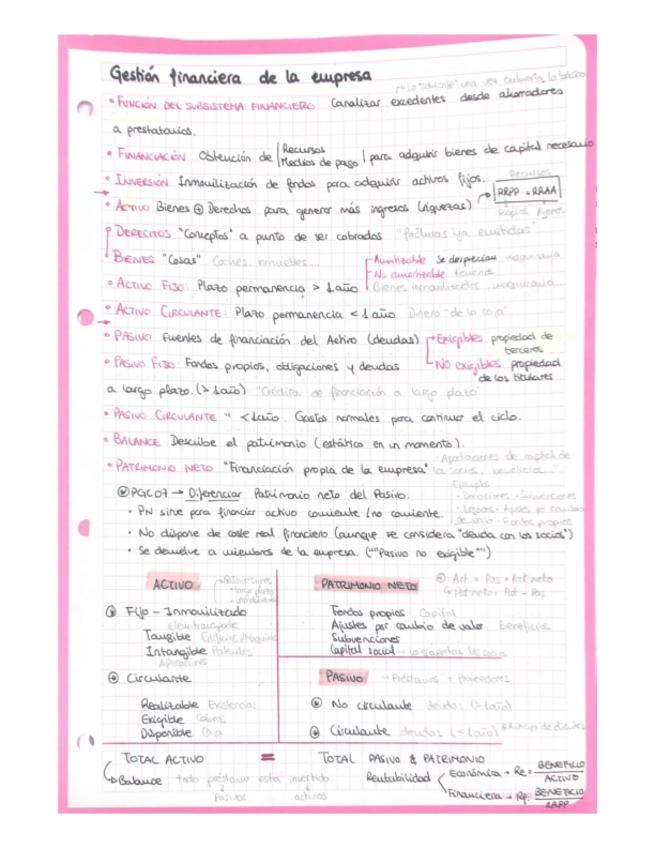 Gestión financiera de la empresa
Lo "sobrante" una vez cubierto lo básico
• FUNCIÓN DEL SUBSISTEMA FINANCIERO Canalizar excedentes desde ahorradores
a prestatarios.
• FINANCIACIÓN Obtención de Recursos
Medios de pago para adquirir bienes de capital necesario
• INVERSIÓN Inmovilización de fondos para adquirir activos fijos. Recursos
RRPP + RRAA
• ACTIVO Bienes + Derechos para generar más ingresos (riquezas)
Propios Ajenos
• DERECHOS "Conceptos" a punto de ser cobrados "facturas ya emitidas"
• BIENES "Cosas" Coches, inmuebles...
Amortizable se deprecian maquinaria
No amortizable terrenos
• ACTIVO FIJO: Plazo permanencia > 1 año Bienes inmovilizados, maquinaria...
• ACTIVO CIRCULANTE: Plazo permanencia < 1 año Dinero "de la caja"
• PASIVO Fuentes de financiación del Activo (deudas)
Exigibles propiedad de
terceros
• PASIVO FIJO: Fondos propios, obligaciones y deudas
NO exigibles propiedad
de los titulares
a largo plazo. (> 1 año) "Créditos de financiación a largo plazo"
• PASIVO CIRCULANTE " < 1 año. Gastos normales para continuar el ciclo.
• BALANCE Describe el patrimonio (estático en un momento).
• PATRIMONIO NETO "Financiación propia de la empresa"
Aportaciones de capital de
la socios, beneficios..."
Ejemplos
PGC07 → Diferenciar Patrimonio neto del Pasivo.
• Donaciones • Subvenciones
• PN sirve para financiar activo corriente / no corriente.
• Legados • Ajustes por cambio
de valor • Fondos propios
• No dispone de coste real financiero (aunque se considera "deuda con los socios")
• Se devuelve a miembros de la empresa (""Pasivo no exigible"")
ACTIVO
• largo plazo
PATRIMONIO NETO
Act = Pas + Pat neto
Pat neto = Act - Pas
Fijo - Inmovilizado
Tangible
Intangible Patentes
Aplicaciones
Fondos propios Capital
Ajustes por cambio de valor Beneficios
Subvenciones
Capital social → lo aportan los socios
Circulante
Realizable Existencias
Exigible
Disponible Caja
PASIVO → Préstamos + Proveedores
No circulante deudas (> 1 año)
Circulante deudas (< 1 año)
TOTAL ACTIVO = TOTAL PASIVO & PATRIMONIO
Balance todo préstamo está invertido
Pasivos activos
Rentabilidad
Económica → Re = BENEFICIO
ACTIVO
Financiera → Rf = BENEFICIO
RRPP